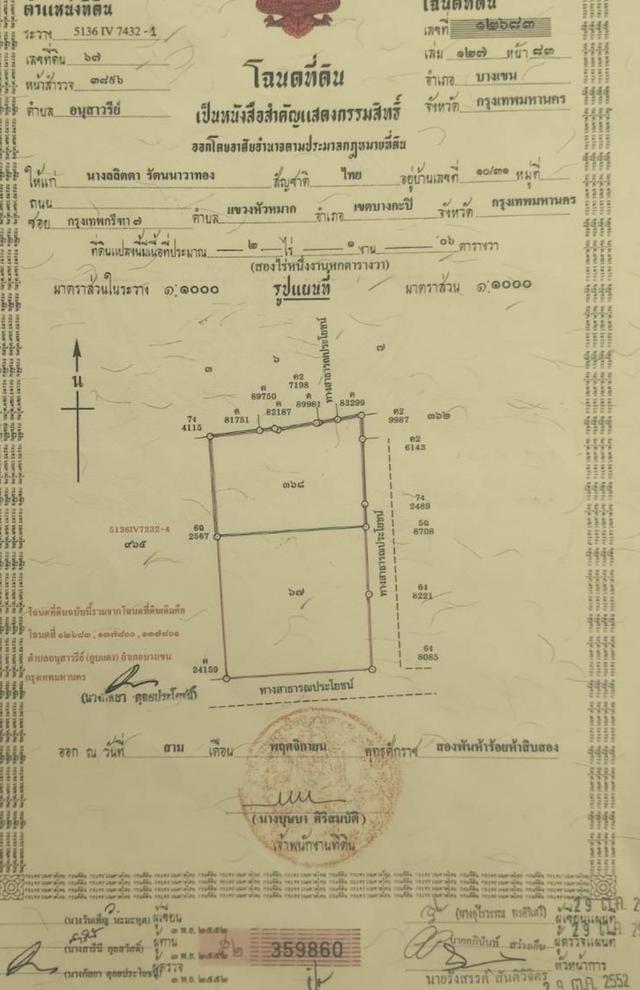 ตำแหน่งที่ดิน
โฉนดที่ดิน
ระวาง 5136 IV 7432 - 1
เลขที่ ๑๒๖๘๓
เลขที่ดิน ๖๗
เล่ม ๑๒๗ หน้า ๘๓
หน้าสำรวจ ๓๘๙๖
อำเภอ บางเขน
ตำบล อนุสาวรีย์
จังหวัด กรุงเทพมหานคร
โฉนดที่ดิน
เป็นหนังสือสำคัญแสดงกรรมสิทธิ์
ออกโดยอาศัยอำนาจตามประมวลกฎหมายที่ดิน
ให้แก่ นางลลิตดา รัตนนาวาทอง สัญชาติ ไทย อยู่บ้านเลขที่ ๑๐/๓๑ หมู่ที่
ถนน
ซอย กรุงเทพกรีฑา ๗ ตำบล แขวงหัวหมาก อำเภอ เขตบางกะปิ จังหวัด กรุงเทพมหานคร
ที่ดินแปลงนี้มีเนื้อที่ประมาณ ๒ ไร่ ๑ งาน ๐๖ ตารางวา
(สองไร่หนึ่งงานหกตารางวา)
มาตราส่วนในระวาง ๑:๑๐๐๐ รูปแผนที่ มาตราส่วน ๑:๑๐๐๐
ทางสาธารณประโยชน์
๓ ๖ ๗
น
ค2
7198
ค
89750
ค
81751
ค
82187
ค
89981
ค
83299
7ง
4115
ค2
9987
๓๖๒
ค2
6143
๓๖๘
7ง
2489
5136IV7232-4
๙๖๕
6ฉ
2567
5ฉ
8708
ทางสาธารณประโยชน์
๖๗
8221
โฉนดที่ดินฉบับนี้รวมจากโฉนดที่ดินเดิมคือ
โฉนดที่ ๑๒๖๘๓, ๑๓๗๘๐๐, ๑๓๗๘๐๑
ตำบลอนุสาวรีย์ (กูบแดง) อำเภอบางเขน
กรุงเทพมหานคร
ค
24159
6ง
8085
ทางสาธารณประโยชน์
(นางกัลยา ดุลยประโยชน์)
ออก ณ วันที่ สาม เดือน พฤศจิกายน พุทธศักราช สองพันห้าร้อยห้าสิบสอง
(นางบุษบา ศิริสมบัติ)
เจ้าพนักงานที่ดิน
ผู้เขียน
๓ พ.ย. ๒๕๕๒
ผู้ทาน
๓ พ.ย. ๒๕๕๒
(นางกัลยา ดุลยประโยชน์) ผู้ตรวจ
๓ พ.ย. ๒๕๕๒
359860
29 ต.ค. 2
ผู้เขียนแผนที่
ผู้ตรวจแผนที่
หัวหน้าการ
นายรังสรรค์ สันติวิจิตร
29 ต.ค. 2552